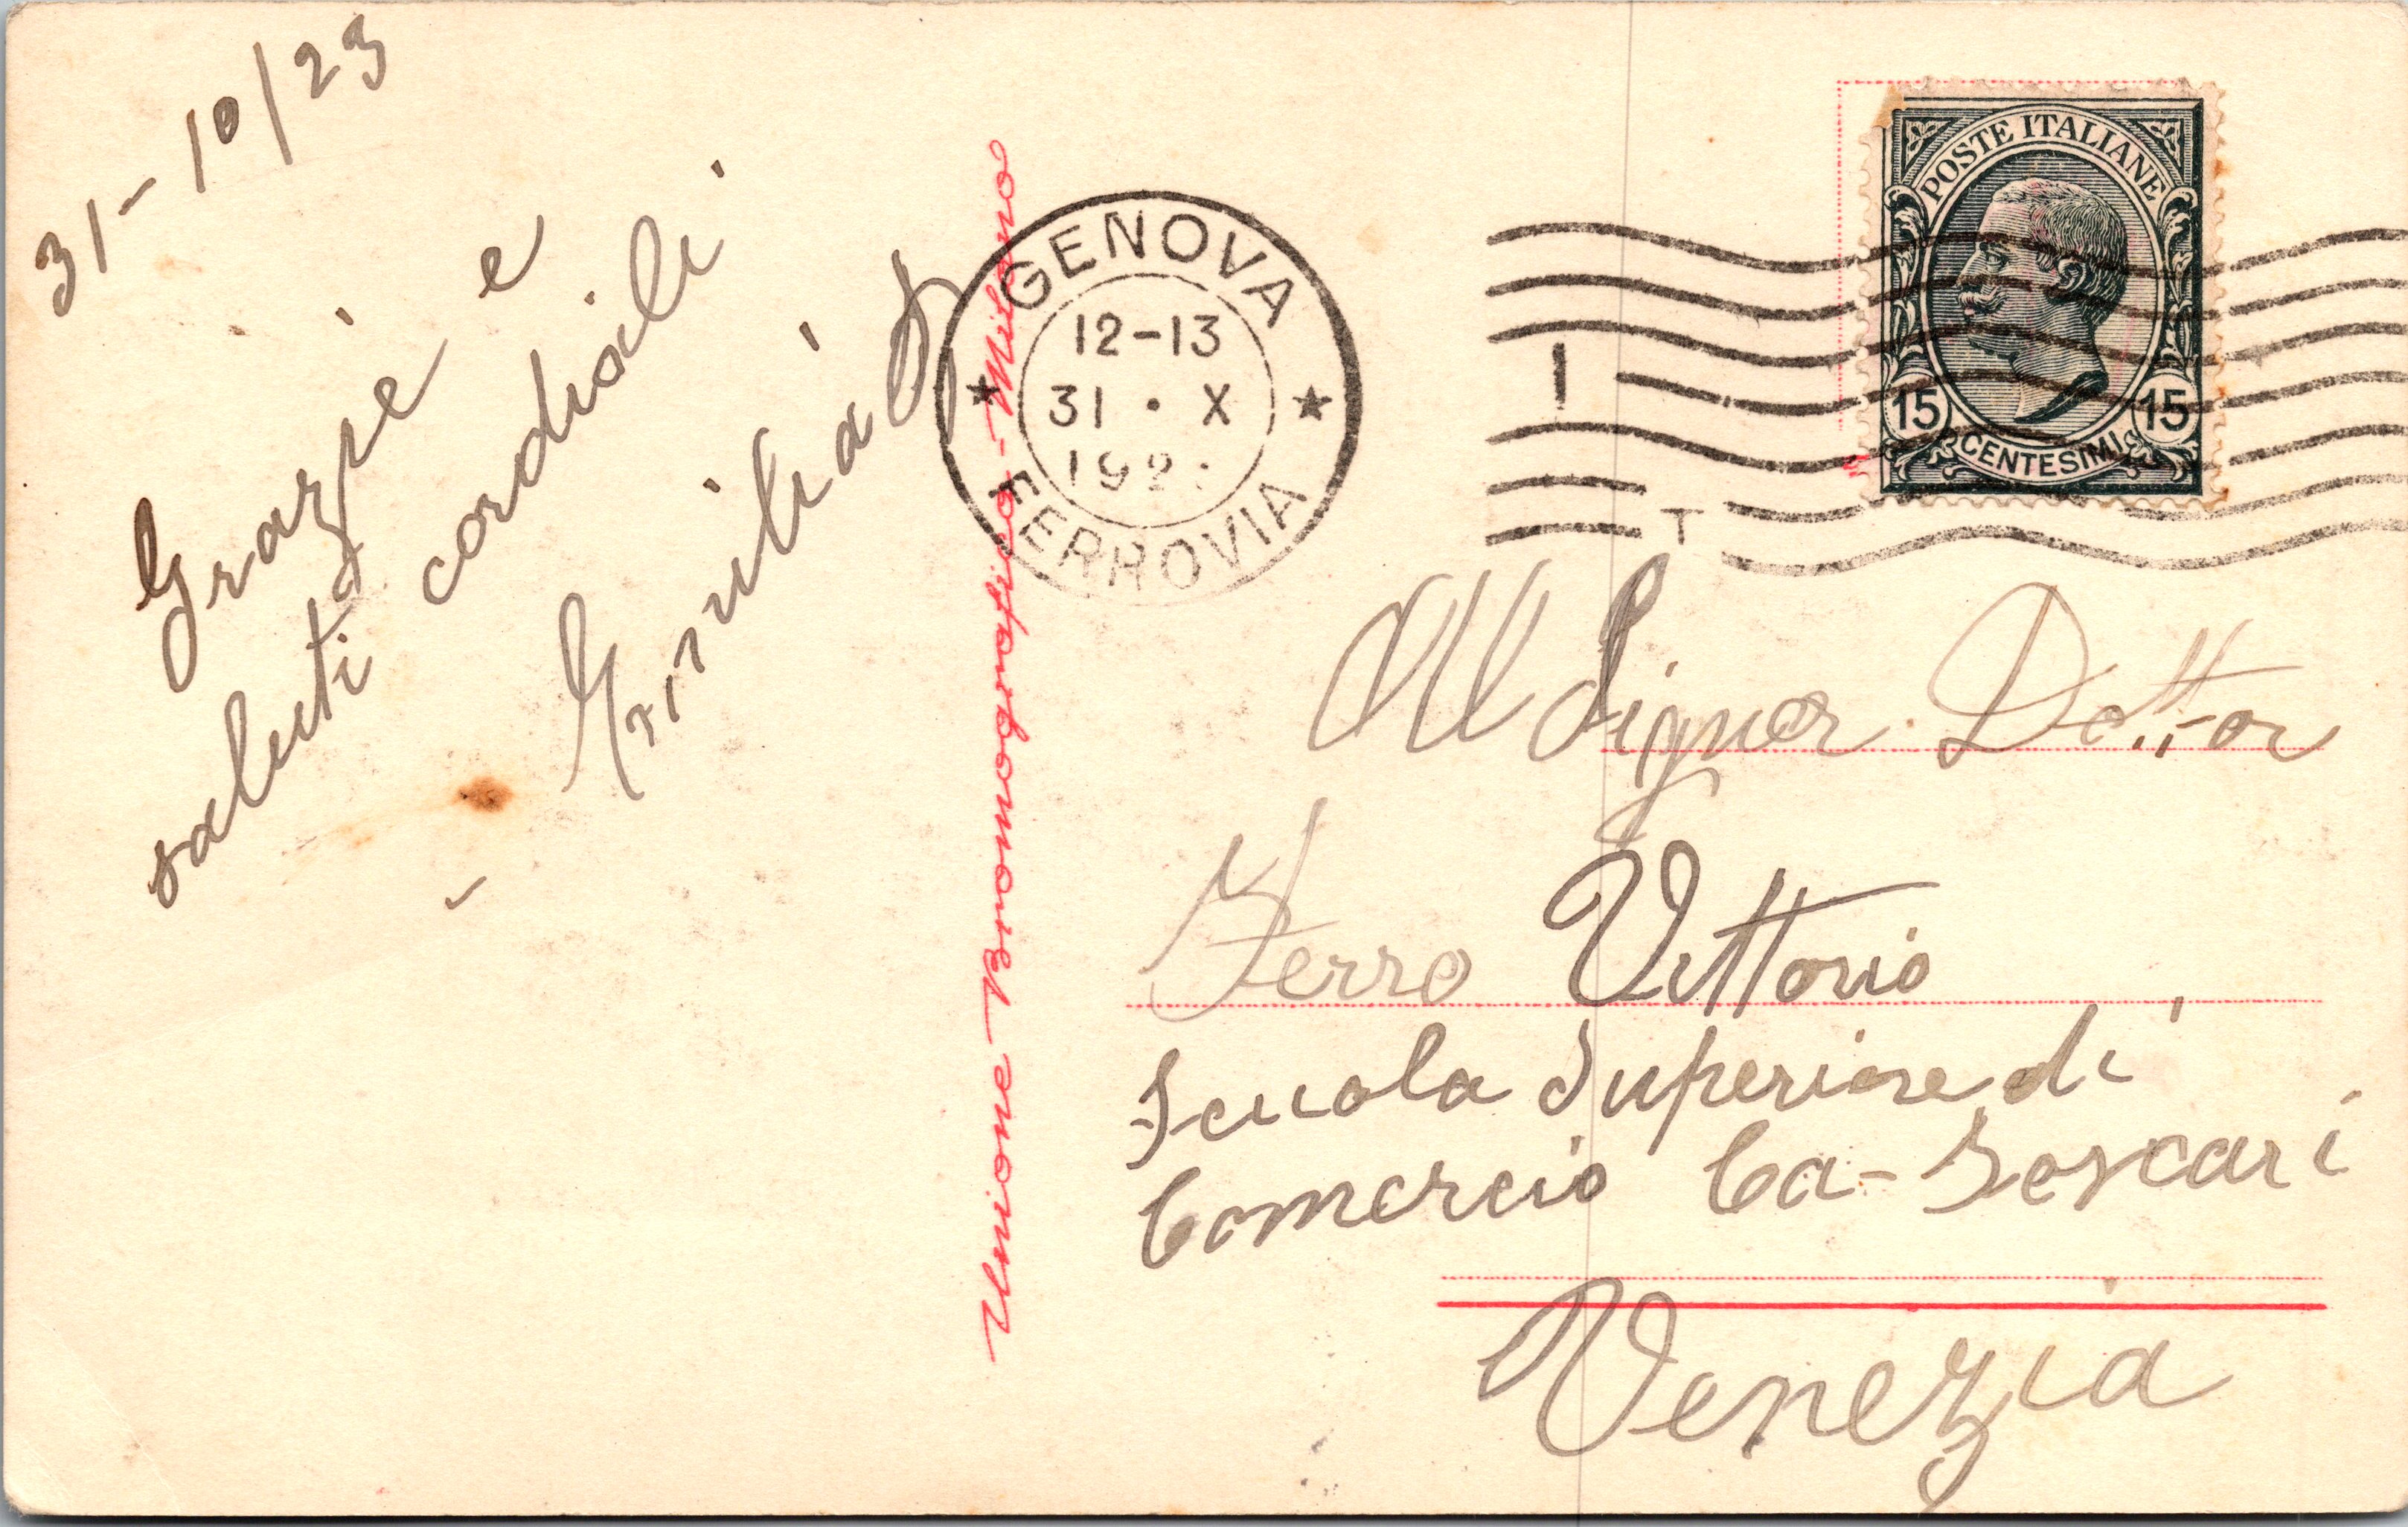 31-10/23
Grazie e
saluti cordiali
Emilia
Unione Bromografica - Milano
GENOVA
12-13
31 · X
192
FERROVIA
POSTE ITALIANE
15 15
CENTESIMI
All Signor Dottor
Ferro Vittorio
Scuola Superiore di
Comercio Ca-Foscari
Venezia